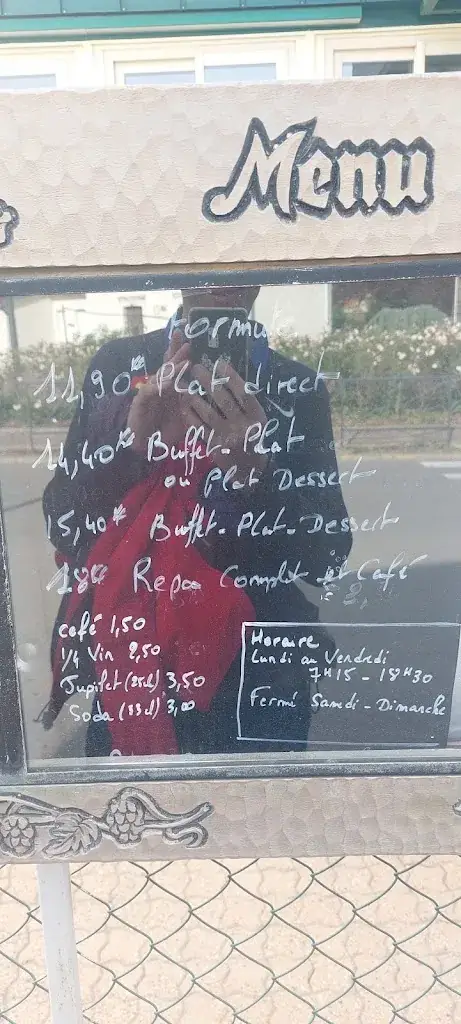 Menu
Formule
11,90€ Plat direct
14,40€ Buffet-Plat
ou Plat Dessert
15,40€ Buffet-Plat-Dessert
18€ Repas Complet et Café
café 1,50
1/4 Vin 2,50
Jupilet (25cl) 3,50
Soda (33cl) 3,00
Horaire
Lundi au Vendredi
7H15 - 18H30
Fermé Samedi - Dimanche